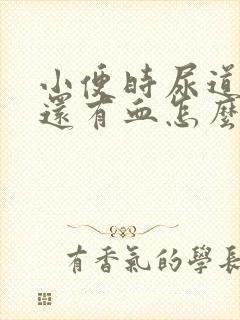 小便時尿道
還有血怎麼
有香氣的學長